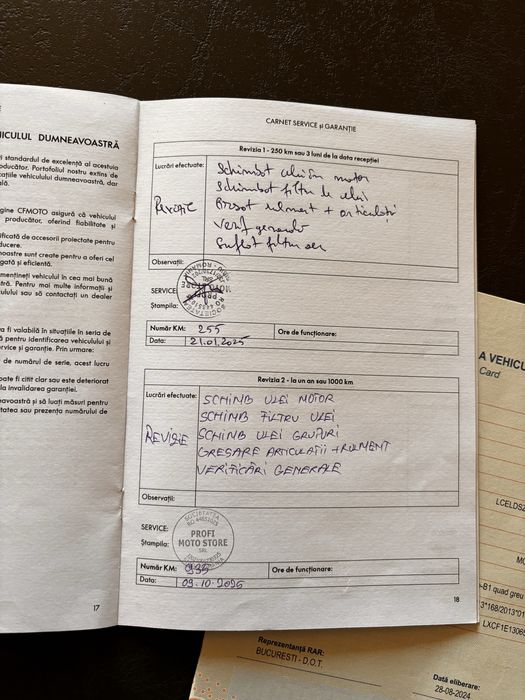 HICULUL DUMNEAVOASTRĂ
i standardul de excelență al acestuia
oducător. Portofoliul nostru extins de
cațiile vehiculului dumneavoastră, dar
ală.
gine CFMOTO asigură că vehiculul
producător, oferind fiabilitate și
ificată de accesorii proiectate pentru
ducere.
noastre sunt create pentru a oferi cel
gată și eficientă.
mențineți vehiculul în cea mai bună
tră. Pentru mai multe informații și
ulului sau să contactați un dealer
a fi valabilă în situațiile în seria de
ă pentru identificarea vehiculului și
rvice și garanție. Prin urmare:
de numărul de serie, acest lucru
oate fi citit clar sau este deteriorat
la invalidarea garanției.
avoastră și să luați măsuri pentru
tatea sau prezența numărului de
17
CARNET SERVICE și GARANȚIE
Revizia 1 - 250 km sau 3 luni de la data recepției
Lucrări efectuate:
Schimbat ulei în motor
Schimbat filtru de ulei
REVIZIE
+ articulații
Verif generale
Suflat filtru aer
Observații:
SERVICE:
Ștampila:
Număr KM: 255
Ore de funcționare:
Data: 21.01.2025
Revizia 2 - la un an sau 1000 km
Lucrări efectuate:
SCHIMB ULEI MOTOR
SCHIMB FILTRU ULEI
REVIZIE
SCHIMB ULEI GRUPURI
GRESARE ARTICULATII + RULMENT
VERIFICĂRI GENERALE
Observații:
SERVICE:
Ștampila:
SOCIETATEA
PROFI
MOTO STORE
SRL
Număr KM: 935
Ore de funcționare:
Data: 09.10.2025
18
A VEHICUL
Card
LCELDSZ
MO
-B1 quad greu
3*168/2013*01
LXCF1E1306
Reprezentanță RAR:
BUCURESTI - D.O.T.
Dată eliberare:
28-08-2024